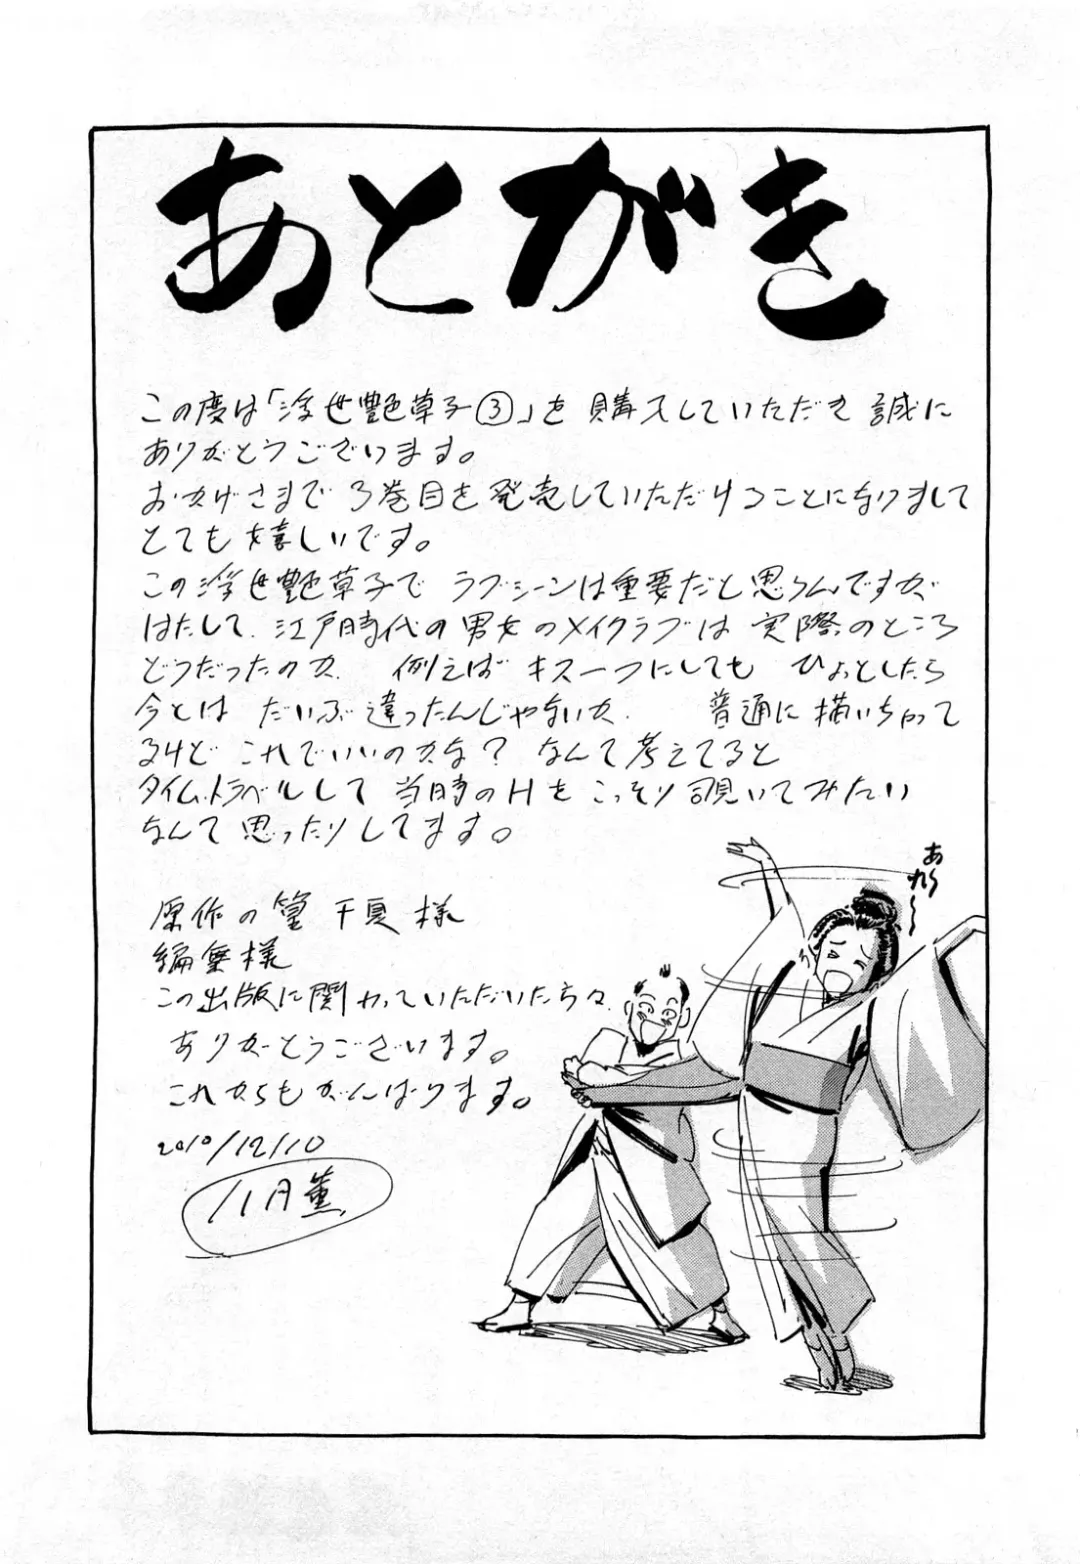 あとがき
この度は「浮世艶草子③」を購入していただき誠に
ありがとうございます。
おかげさまで3巻目を発売していただけることになりまして
とても嬉しいです。
この浮世艶草子でラブシーンは重要だと思うんですが
はたして、江戸時代の男女のメイクラブは実際のところ
どうだったのか、例えばキス一つにしてもひょっとしたら
今とはだいぶ違ったんじゃないか、普通に描いちゃって
るけどこれでいいのかな？なんて考えてると
タイムトラベルして当時のHをこっそり覗いてみたい
なんて思ったりしてます。
あれ〜〜
原作の篁千夏様
編集様
この出版に関わっていただいた方々
ありがとうございます。
これからもがんばります。
2010/12/10
八月薫